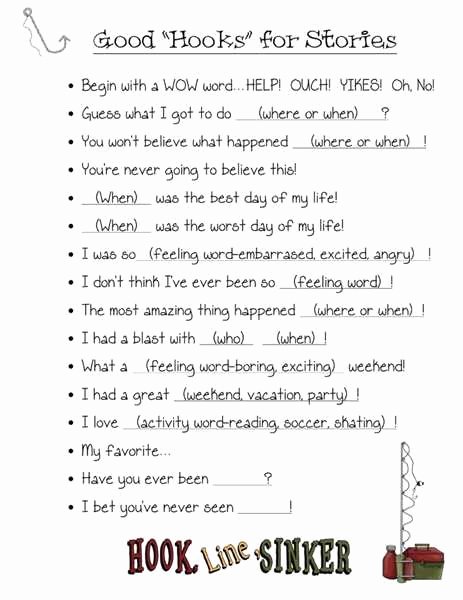 Good "Hooks" for Stories
• Begin with a WOW word...HELP! OUCH! YIKES! Oh, No!
• Guess what I got to do __(where or when)__?
• You won't believe what happened __(where or when)__!
• You're never going to believe this!
• __(When)__ was the best day of my life!
• __(When)__ was the worst day of my life!
• I was so __(feeling word-embarrased, excited, angry)__!
• I don't think I've ever been so __(feeling word)__!
• The most amazing thing happened __(where or when)__!
• I had a blast with __(who)__ __(when)__!
• What a __(feeling word-boring, exciting)__ weekend!
• I had a great __(weekend, vacation, party)__!
• I love __(activity word-reading, soccer, skating)__!
• My favorite...
• Have you ever been ______?
• I bet you've never seen ______!
HOOK, Line, SINKER